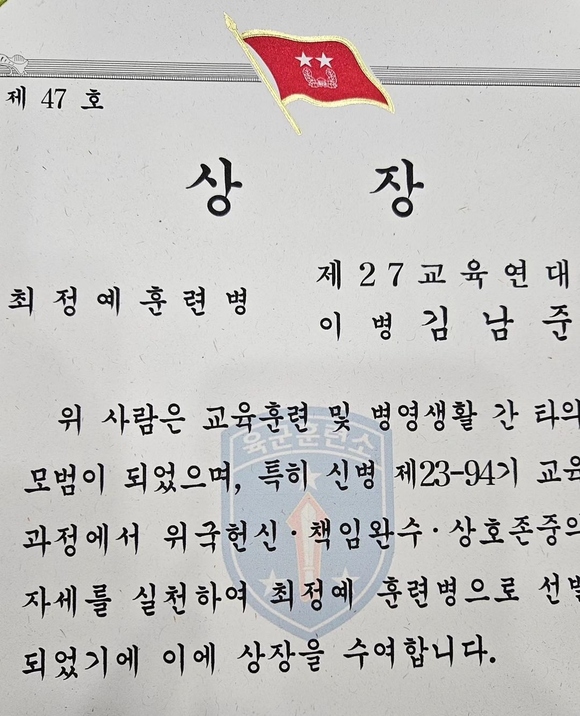 제 47 호
상 장
최정예훈련병
제27교육연대
이병 김남준
위 사람은 교육훈련 및 병영생활 간 타의
모범이 되었으며, 특히 신병 제23-94기 교육
과정에서 위국헌신·책임완수·상호존중의
자세를 실천하여 최정예 훈련병으로 선발
되었기에 이에 상장을 수여합니다.
육군훈련소